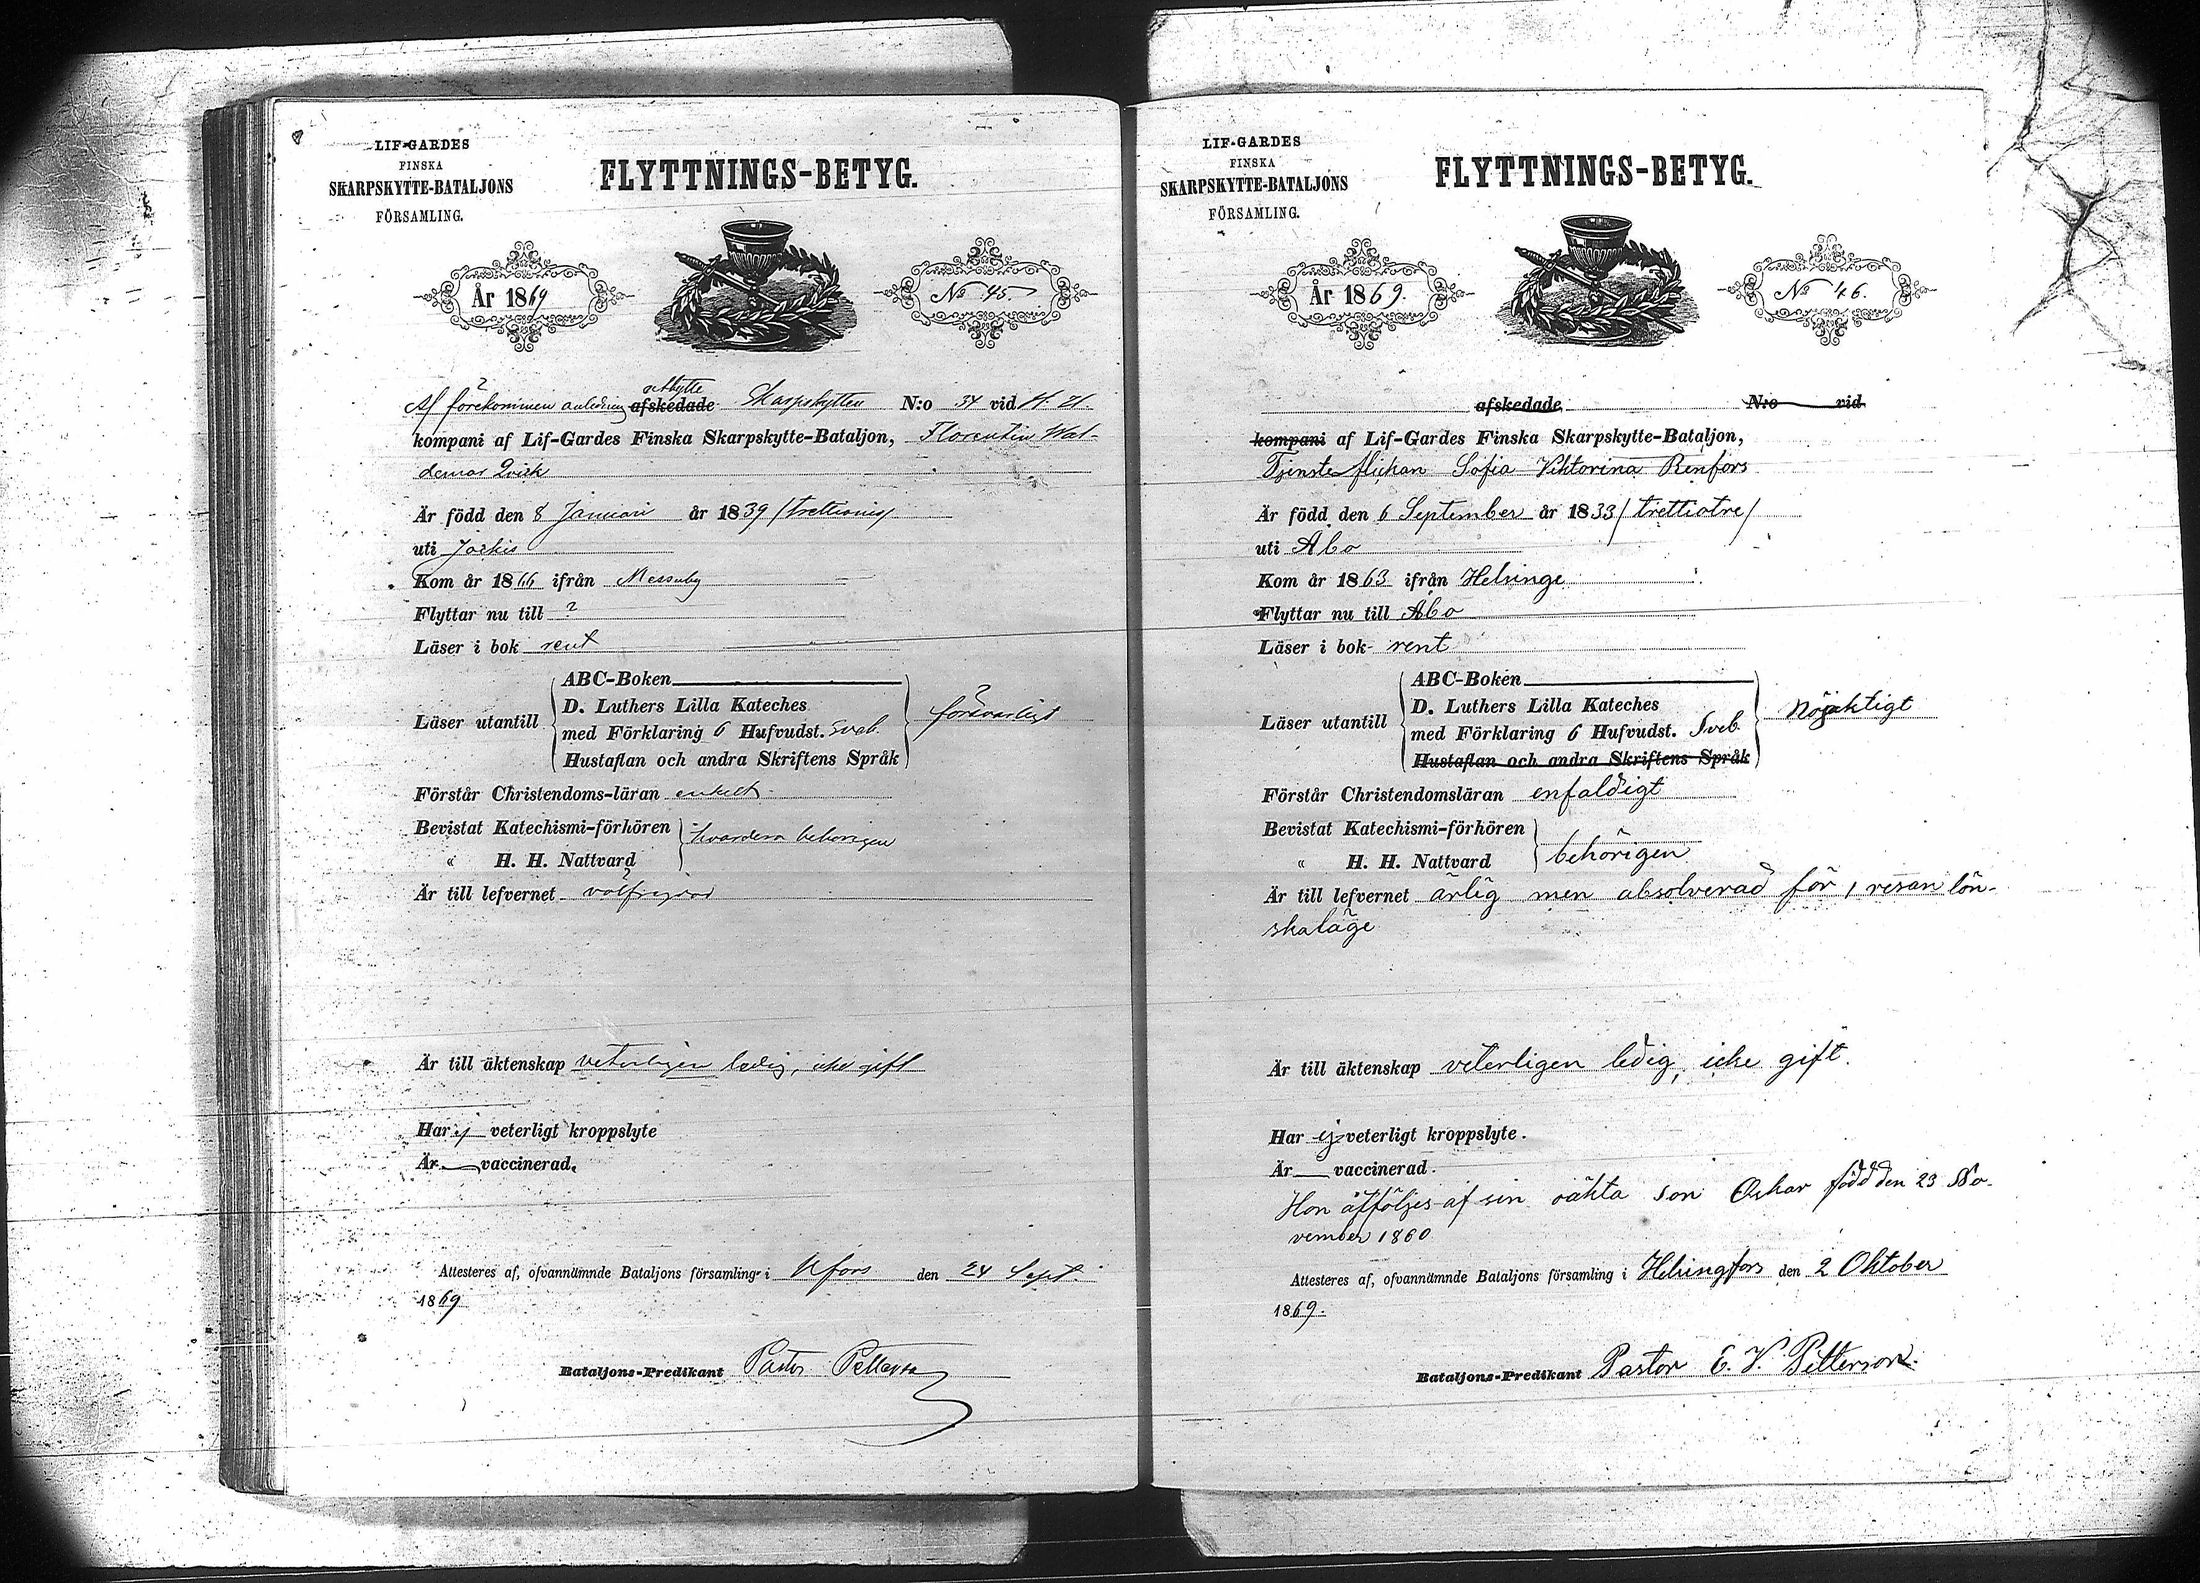 LIF-GARDES
FINSKA
SKARPSKYTTE-BATALJONS
FÖRSAMLING.
FLYTTNINGS-BETYG.
År 1869
No 45.
Af förekommen anledning utbytte afskedade Skarpskytten N:o 34 vid
kompani af Lif-Gardes Finska Skarpskytte-Bataljon, Florentin Wal-
demar Qvick
Är född den 8 Januari år 1839 /trettionio/
uti Jockis
Kom år 1866 ifrån Messuby
Flyttar nu till ?
Läser i bok rent
Läser utantill
ABC-Boken
D. Luthers Lilla Kateches
med Förklaring 6 Hufvudst. Sveb.
Hustaflan och andra Skriftens Språk
försvarligt
Förstår Christendoms-läran enkelt
Bevistat Katechismi-förhören
« H. H. Nattvard
hvardera behörigen
Är till lefvernet välfrejdad
Är till äktenskap veterligen ledig, icke gift
Har ej veterligt kroppslyte
Är — vaccinerad.
Attesteres af, ofvannämnde Bataljons församling i Hfors den 24 Sept.
1869
Bataljons-Predikant Pastor Petterson
LIF-GARDES
FINSKA
SKARPSKYTTE-BATALJONS
FÖRSAMLING.
FLYTTNINGS-BETYG.
År 1869.
No 46.
afskedade N:o vid
kompani af Lif-Gardes Finska Skarpskytte-Bataljon,
Tjensteflickan Sofia Viktorina Renfors
Är född den 6 September år 1833 /trettiotre/
uti Åbo
Kom år 1863 ifrån Helsinge
Flyttar nu till Åbo
Läser i bok rent
Läser utantill
ABC-Boken
D. Luthers Lilla Kateches
med Förklaring 6 Hufvudst. Sveb.
Hustaflan och andra Skriftens Språk
nöjaktigt
Förstår Christendomsläran enfaldigt
Bevistat Katechismi-förhören
« H. H. Nattvard
behörigen
Är till lefvernet ärlig men absolverad för 1 resan lön-
skaläge
Är till äktenskap veterligen ledig, icke gift.
Har ej veterligt kroppslyte.
Är — vaccinerad.
Hon åtföljes af sin oäkta son Oskar född den 23 No-
vember 1860
Attesteres af, ofvannämnde Bataljons församling i Helsingfors den 2 Oktober
1869.
Bataljons-Predikant Pastor E. V. Petterson.